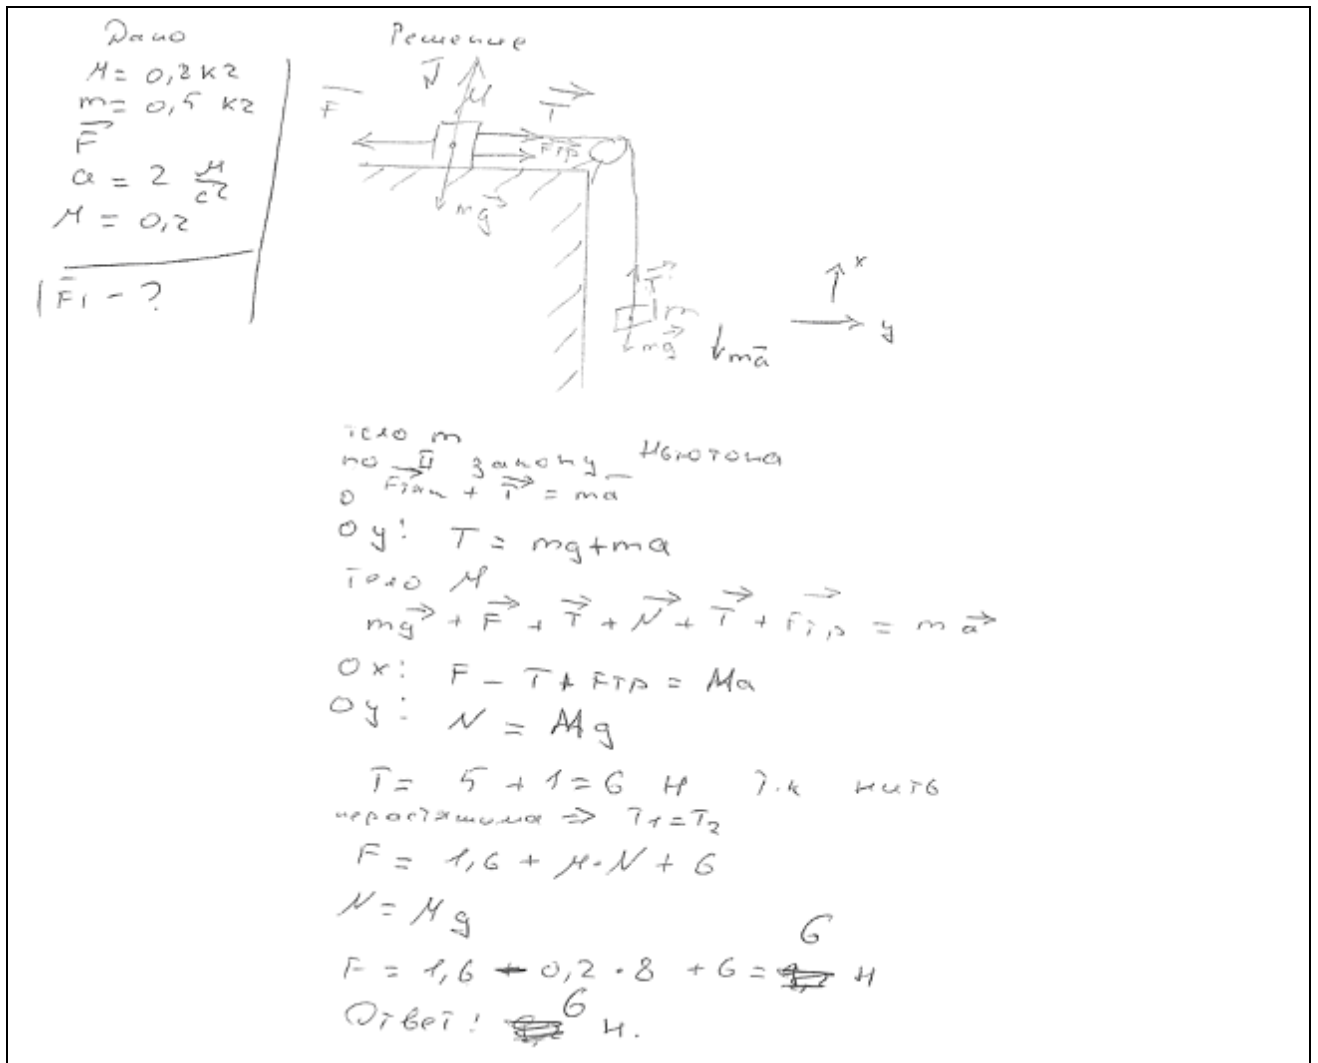 Дано
M = 0,8 кг
m = 0,5 кг
F
a = 2 м/с²
μ = 0,2
|F| - ?
Решение
N
M
T
F
Fтр
mg
T
m
mg
ma
x
y
тело m
по II закону Ньютона
Fтяж + T = ma
Oy: T = mg + ma
Тело M
mg + F + T + N + T + Fтр = ma
Ox: F - T + Fтр = Ma
Oy: N = Mg
T = 5 + 1 = 6 Н т.к нить
нерастяжима => T1 = T2
F = 1,6 + μ·N + 6
N = Mg
6
F = 1,6 - 0,2 · 8 + 6 = Н
Ответ: 6 Н.